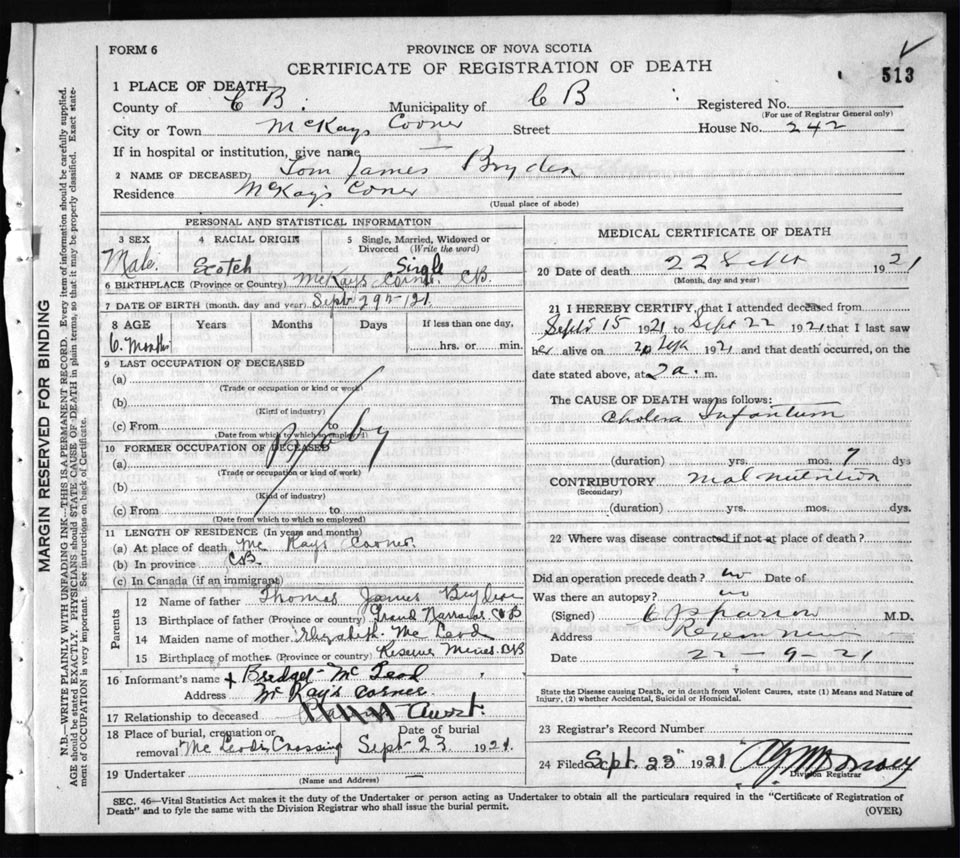 FORM 6
PROVINCE OF NOVA SCOTIA
CERTIFICATE OF REGISTRATION OF DEATH
513
1 PLACE OF DEATH
County of C B. Municipality of C B Registered No.
(For use of Registrar General only)
City or Town McKays Corner Street House No. 242
If in hospital or institution, give name
2 NAME OF DECEASED Tom James Bryden
Residence McKay's Coner
(Usual place of abode)
PERSONAL AND STATISTICAL INFORMATION
3 SEX 4 RACIAL ORIGIN 5 Single, Married, Widowed or Divorced (Write the word)
Male. Scotch Single
6 BIRTHPLACE (Province or Country) McKays Corner. CB.
7 DATE OF BIRTH (month, day and year) Sept 29th 121.
8 AGE Years Months Days If less than one day,
6. Months hrs. or min.
9 LAST OCCUPATION OF DECEASED
(a)
(Trade or occupation or kind or work)
(b)
(Kind of industry)
(c) From to
(Date from which to which so employed)
Baby
10 FORMER OCCUPATION OF DECEASED
(a)
(Trade or occupation or kind of work)
(b)
(Kind of industry)
(c) From to
(Date from which to which so employed)
11 LENGTH OF RESIDENCE (In years and months)
(a) At place of death Mc Kays Corner.
(b) In province CB.
(c) In Canada (if an immigrant)
Parents
12 Name of father Thomas James Bryden
13 Birthplace of father (Province or country) Grand Narrows CB
14 Maiden name of mother Elizabeth Mc Leod
15 Birthplace of mother (Province or country) Reserve Mines. CB
16 Informant's name Bridget Mc Leod
Address Mc Kay's Corner.
17 Relationship to deceased Aunt.
18 Place of burial, cremation or removal Mc Leod's Crossing Date of burial Sept 23. 1921.
19 Undertaker
(Name and Address)
MEDICAL CERTIFICATE OF DEATH
20 Date of death 22 Sept 1921
(Month, day and year)
21 I HEREBY CERTIFY, that I attended deceased from
Sept 15 1921 to Sept 22 1921 that I last saw
her alive on 20 Sept 1921 and that death occurred, on the
date stated above, at 2 a. m.
The CAUSE OF DEATH was as follows:
Cholera Infantum
(duration) yrs. mos. 7 dys
CONTRIBUTORY Mal nutrition
(Secondary)
(duration) yrs. mos. dys.
22 Where was disease contracted if not at place of death?
Did an operation precede death? no Date of
Was there an autopsy? no
(Signed) M.D.
Address
Date 22-9-21
State the Disease causing Death, or in death from Violent Causes, state (1) Means and Nature of
Injury, (2) whether Accidental, Suicidal or Homicidal.
23 Registrar's Record Number
24 Filed Sept. 23 1921
Division Registrar
SEC. 46—Vital Statistics Act makes it the duty of the Undertaker or person acting as Undertaker to obtain all the particulars required in the "Certificate of Registration of
Death" and to fyle the same with the Division Registrar who shall issue the burial permit.
(OVER)
MARGIN RESERVED FOR BINDING
N.B.—WRITE PLAINLY WITH UNFADING INK—THIS IS A PERMANENT RECORD. Every item of information should be carefully supplied.
AGE should be stated EXACTLY. PHYSICIANS should STATE CAUSE OF DEATH in plain terms, so that it may be properly classified. Exact state-
ment of OCCUPATION is very important. See instructions on back of Certificate.